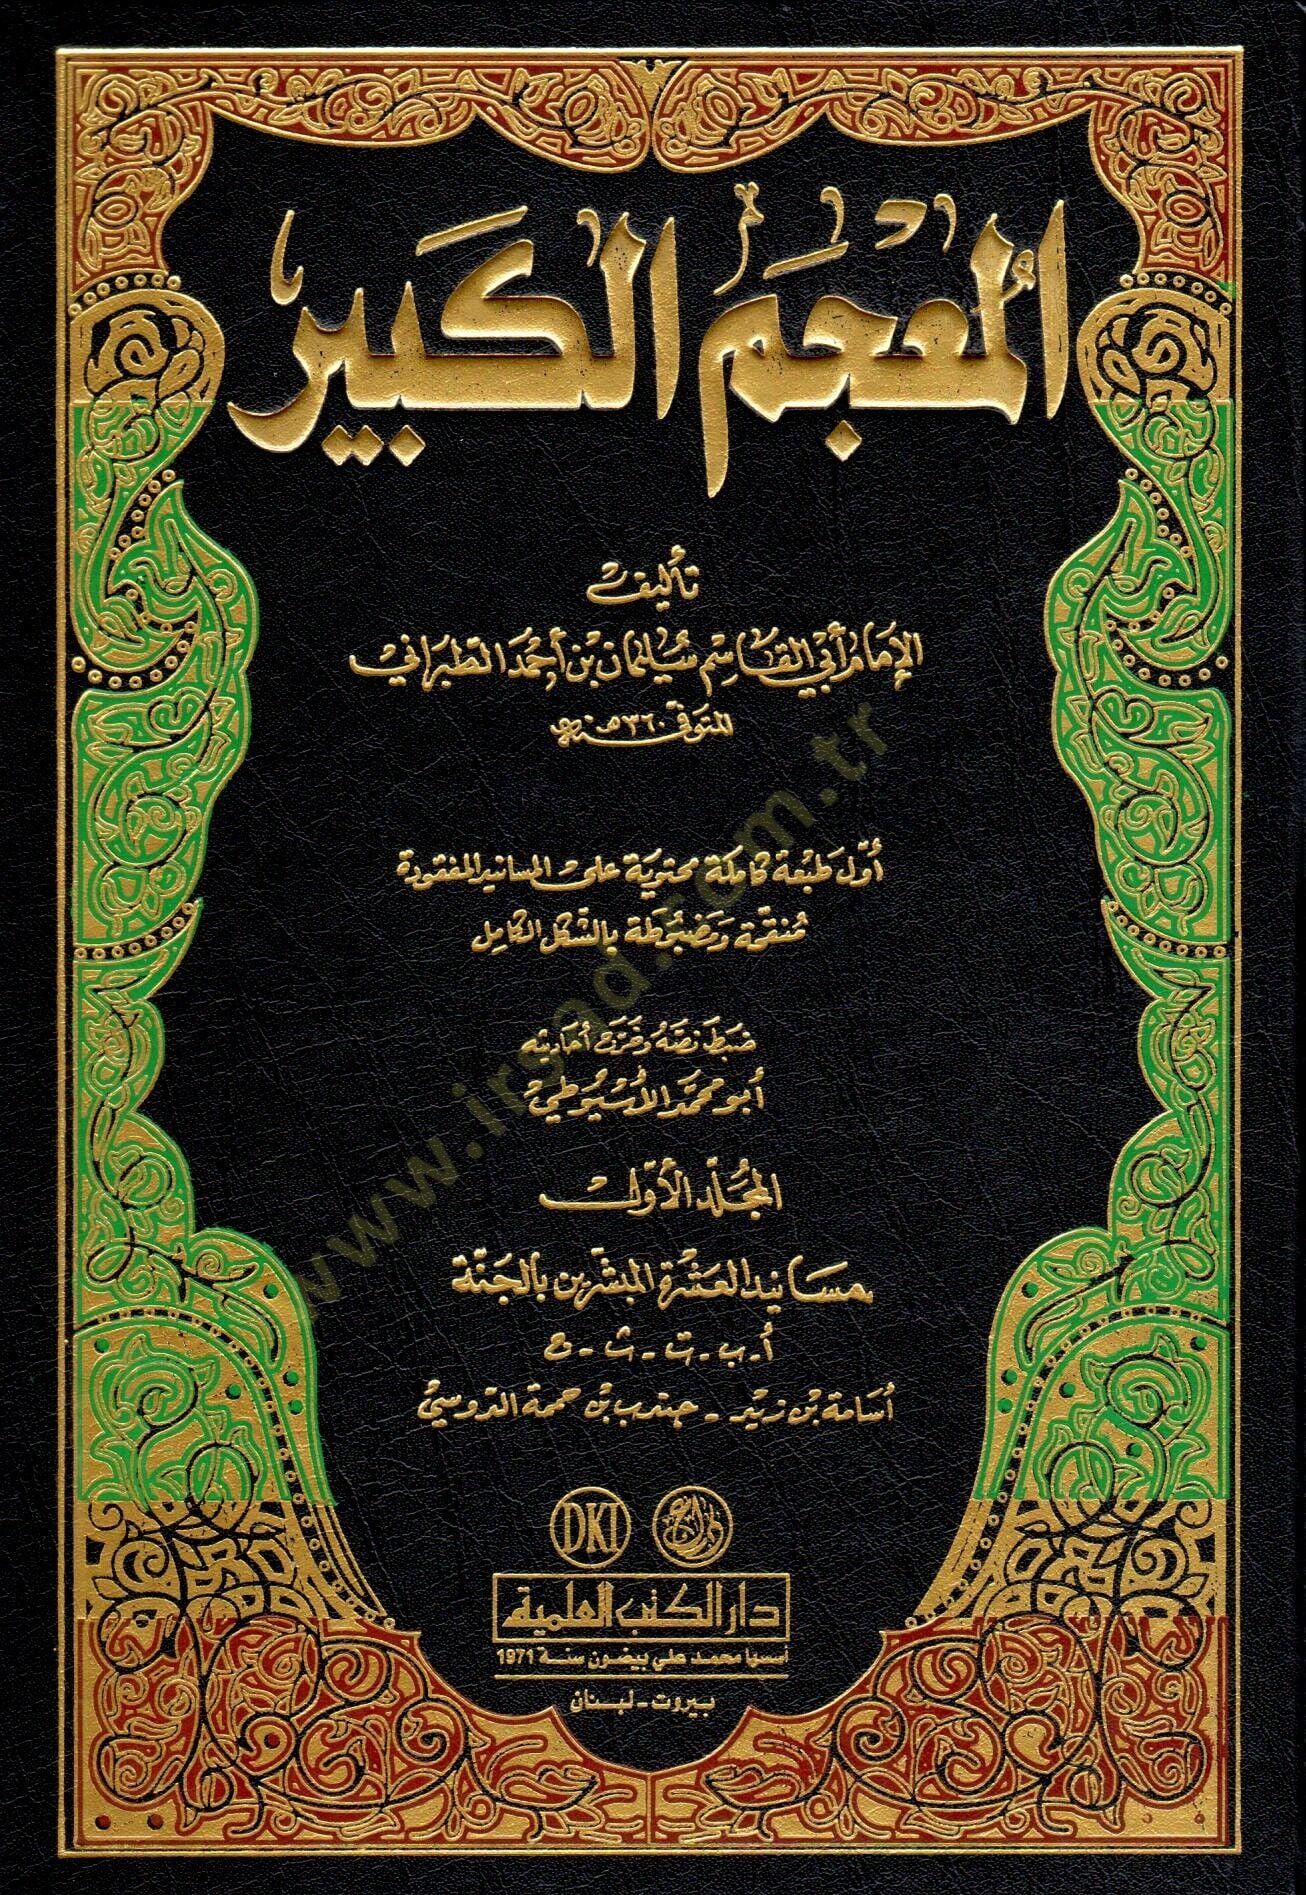 المُعْجَمُ الكَبير
تأليف
الإمام أبي القاسم سُليمان بن أحمد الطبراني
المتوفى سنة ٣٦٠ هـ
أول طبعة كاملة محتوية على المسانيد المفقودة
مُنقّحة ومضبُوطة بالشكل الكامل
ضبط نصّه وخرّج أحاديثه
أبو محمّد الأسيُوطي
المجلّد الأوّل
مسانيد العشرة المبشّرين بالجنّة
أ - ب - ت - ث - ج
أسامة بن زيد - جندب بن حممة الدوسي
DKI
دار الكتب العلمية
أسسها محمد علي بيضون سنة 1971
بيروت - لبنان
www.irsad.com.tr